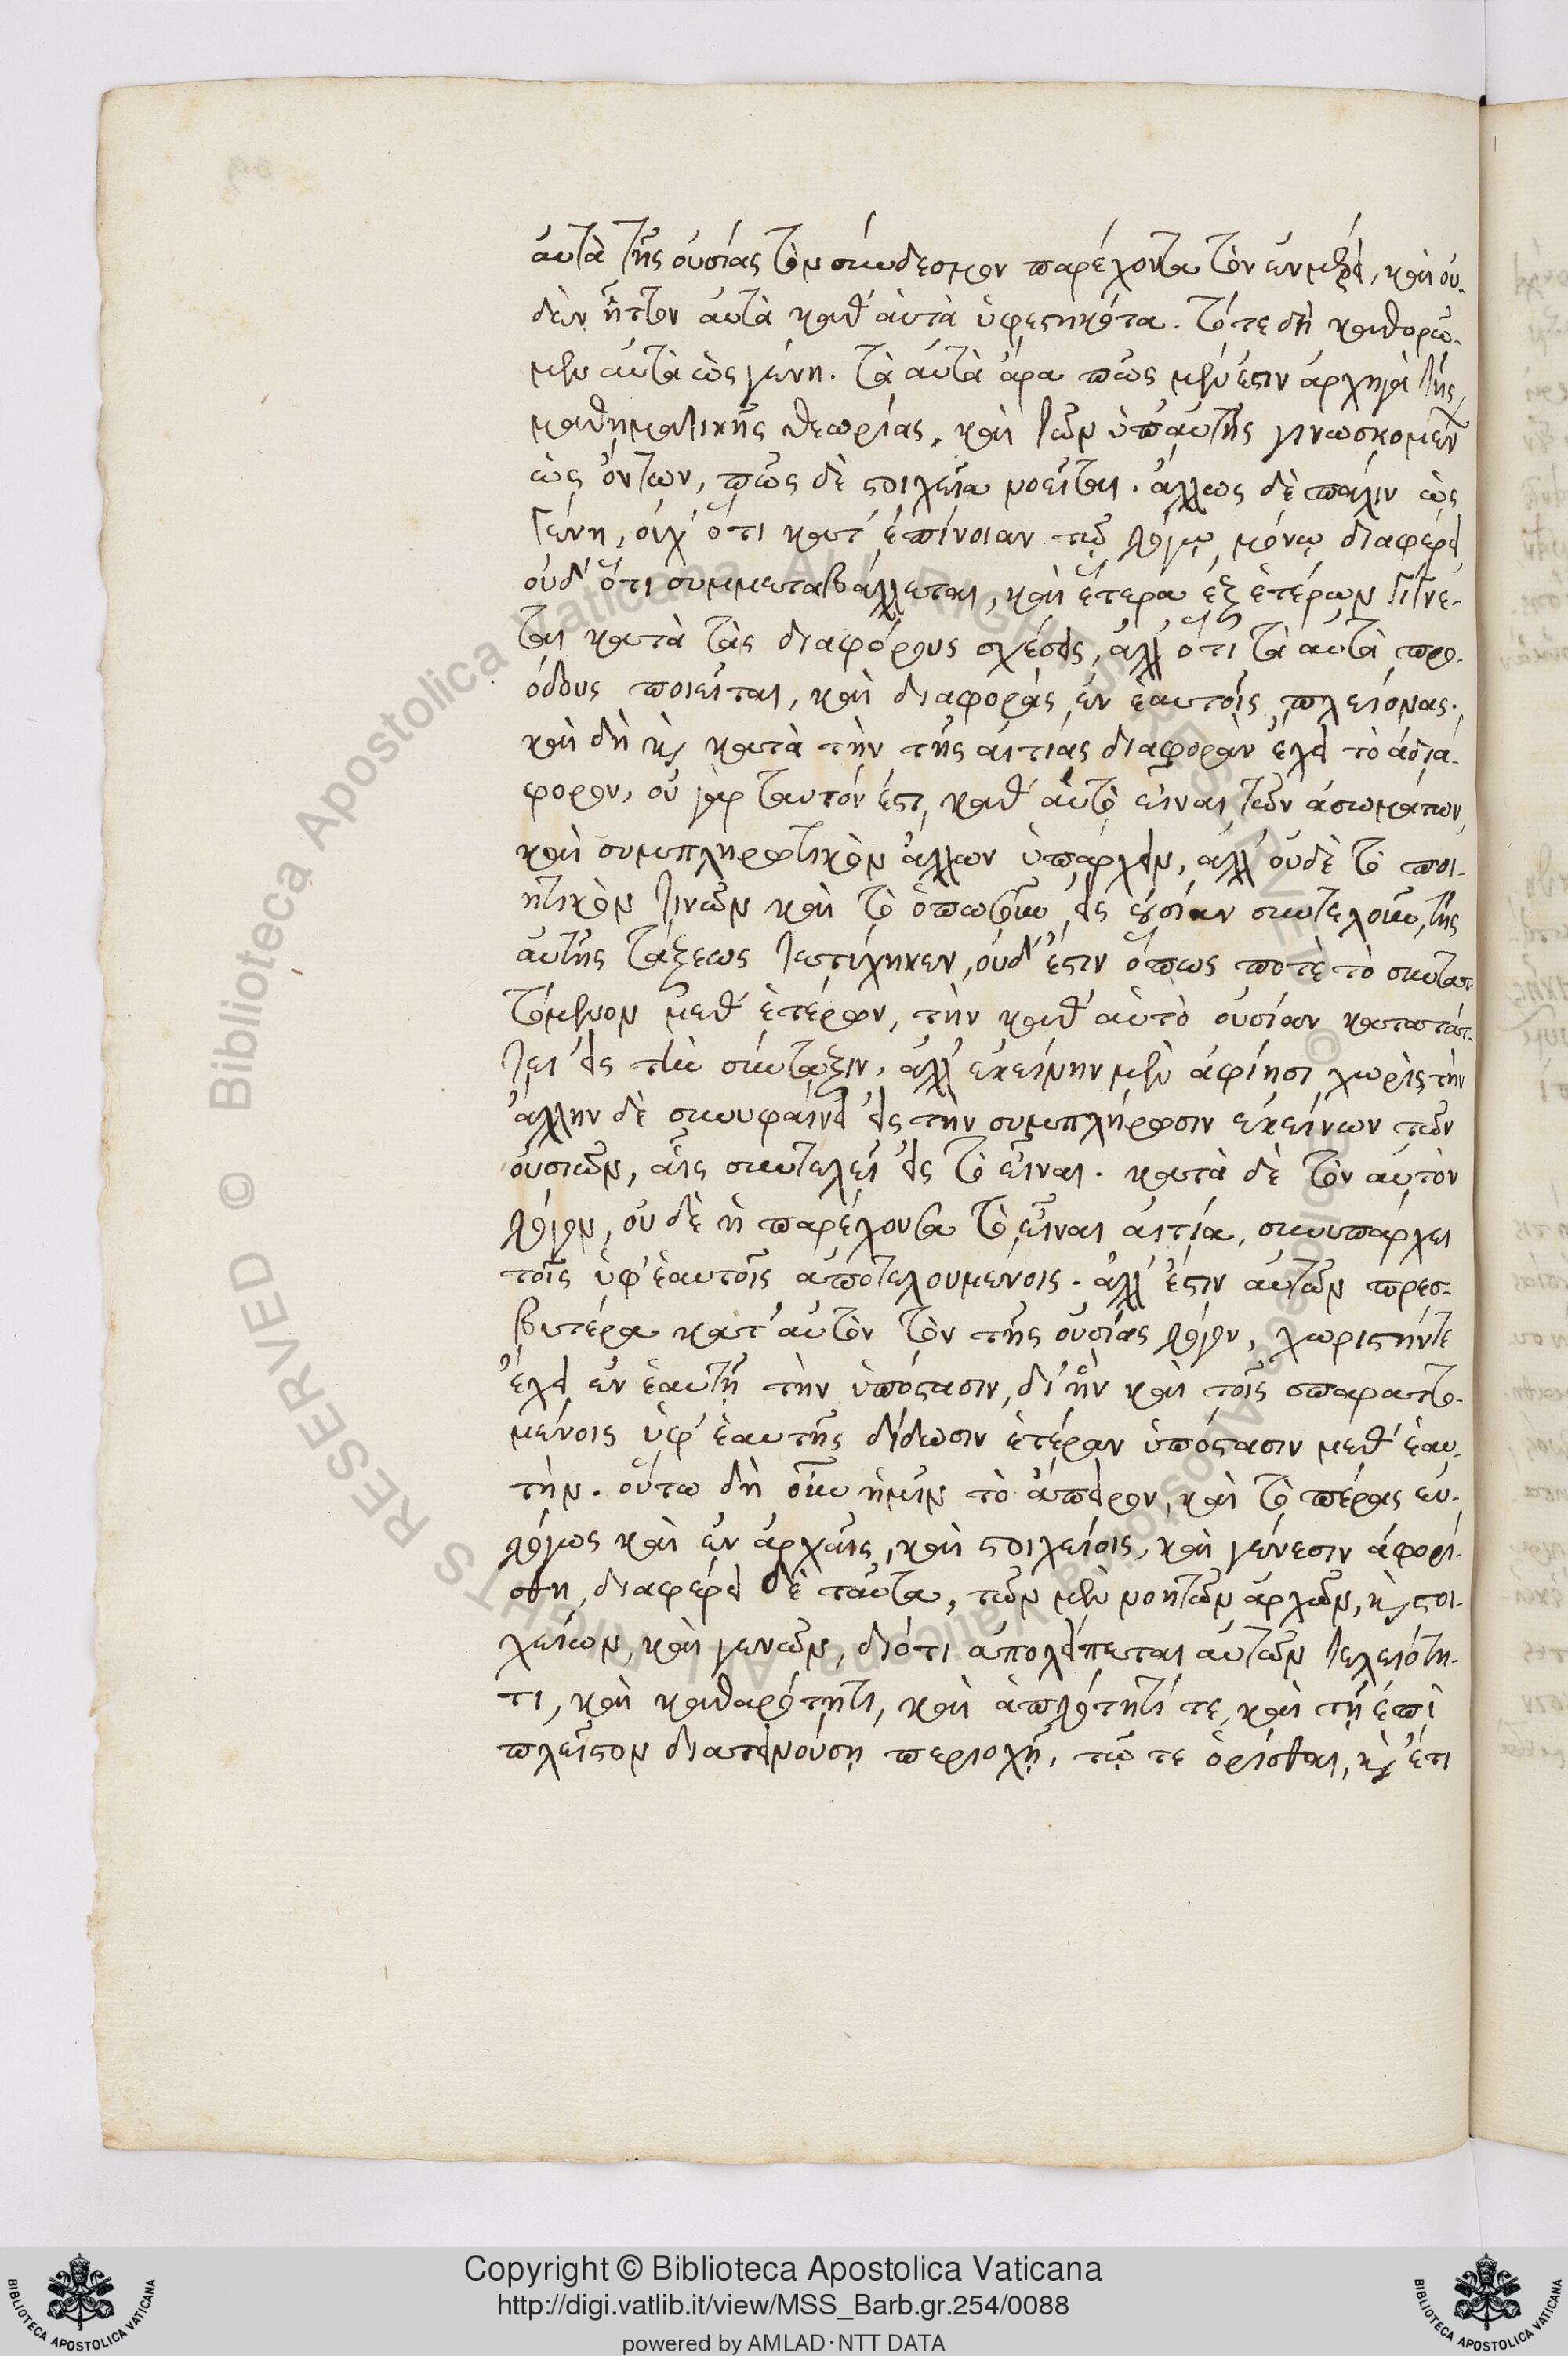 αὐτὰ τῆς οὐσίας τὸν σύνδεσμον παρέχοντα τὸν ἐν μέρει, καὶ οὐ-
δὲν ἧττον αὐτὰ καθ' αὑτὰ ὑφεστηκότα. τότε δὴ καθορῶ-
μεν αὐτὰ ὡς γένη. τὰ αὐτὰ ἄρα πῶς μέν ἐστιν ἀρχηγὰ τῆς
μαθηματικῆς θεωρίας, καὶ τῶν ὑπ' αὐτῆς γινωσκομένων
ὡς ὄντων, πῶς δὲ στοιχεῖα νοεῖται. ἄλλως δὲ πάλιν ὡς
γένη, οὐχ ὅτι κατ' ἐπίνοιαν τῷ λόγῳ μόνῳ διαφέρει
οὐδ' ὅτι συμμεταβάλλεται, καὶ ἕτερα ἐξ ἑτέρων γίνε-
ται κατὰ τὰς διαφόρους σχέσεις, ἀλλ' ὅτι τὰ αὐτὰ προ-
όδους ποιεῖται, καὶ διαφορὰς ἐν ἑαυτοῖς πλείονας.
καὶ δὴ καὶ κατὰ τὴν τῆς αἰτίας διαφορὰν ἔχει τὸ ἀδιά-
φορον, οὐ γὰρ ταυτόν ἐστι καθ' αὑτὸ εἶναι τῶν ἀσωμάτων,
καὶ συμπληρωτικὸν ἄλλων ὑπάρχειν, ἀλλ' οὐδὲ τὸ ποι-
ητικὸν τινῶν καὶ τὸ ὁπωσοῦν εἰς οὐσίαν συντελοῦν, τῆς
αὐτῆς τάξεως τετύχηκεν, οὐδ' ἔστιν ὅπως ποτὲ τὸ συντατ-
τόμενον μεθ' ἑτέρων, τὴν καθ' αὑτὸ οὐσίαν κατατάτ-
τει εἰς τὴν σύνταξιν, ἀλλ' ἐκείνην μὲν ἀφίησι χωρὶς τὴν
ἄλλην δὲ συνυφαίνει εἰς τὴν συμπλήρωσιν ἐκείνων τῶν
οὐσιῶν, αἷς συντελεῖ εἰς τὸ εἶναι. κατὰ δὲ τὸν αὐτὸν
λόγον, οὐδὲ ἡ παρέχουσα τὸ εἶναι αἰτία, συνυπάρχει
τοῖς ὑφ' ἑαυτοῖς ἀποτελουμένοις. ἀλλ' ἔστιν αὐτῶν πρεσ-
βυτέρα κατ' αὐτὸν τὸν τῆς οὐσίας λόγον, χωριστήν τε
ἔχει ἐν ἑαυτῇ τὴν ὑπόστασιν, δι' ἣν καὶ τοῖς σπαραττο-
μένοις ὑφ' ἑαυτῆς δίδωσιν ἑτέραν ὑπόστασιν μεθ' ἑαυ-
τήν. οὕτω δὴ οὖν ἡμῖν τὸ ἄπειρον, καὶ τὸ πέρας εὐ-
λόγως καὶ ἐν ἀρχαῖς, καὶ στοιχείοις, καὶ γένεσιν ἀφορί-
σθη, διαφέρει δὲ ταῦτα, τῶν μὲν νοητῶν ἀρχῶν, καὶ στοι-
χείων, καὶ γενῶν, διότι ἀπολείπεται αὐτῶν τελειότη-
τι, καὶ καθαρότητι, καὶ ἁπλότητί τε, καὶ τῇ ἐπὶ
πλεῖστον διατεινούσῃ περιοχῇ, τῷ τε ὁρίσθαι, καὶ ἔτι
Copyright © Biblioteca Apostolica Vaticana
http://digi.vatlib.it/view/MSS_Barb.gr.254/0088
powered by AMLAD·NTT DATA